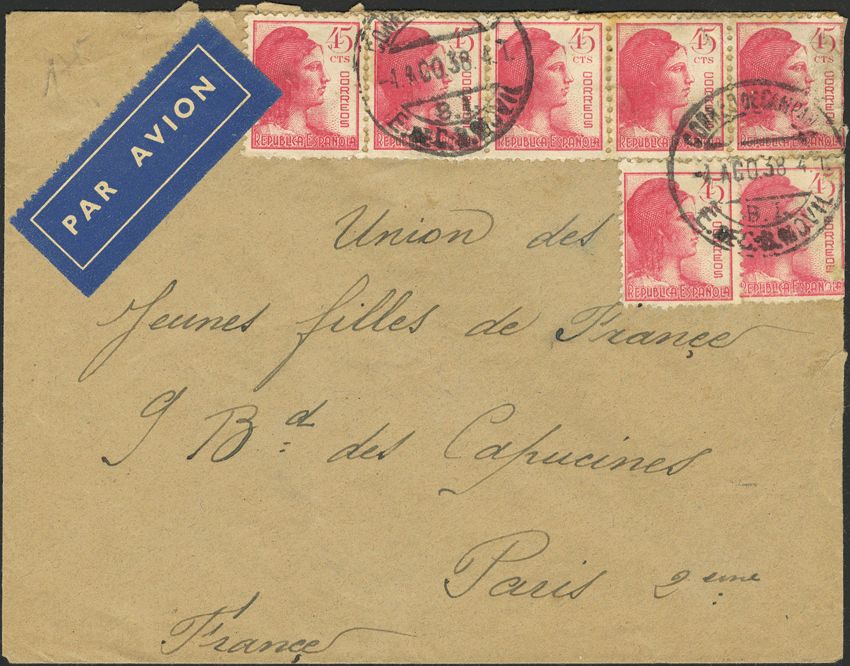 125
PAR AVION
45 CTS CORREOS REPUBLICA ESPAÑOLA
45 CTS CORREOS REPUBLICA ESPAÑOLA
45 CTS CORREOS REPUBLICA ESPAÑOLA
45 CTS CORREOS REPUBLICA ESPAÑOLA
45 CTS CORREOS REPUBLICA ESPAÑOLA
-4.AGO.38 4.T.
B.I.
45 CTS CORREOS REPUBLICA ESPAÑOLA
45 CORREOS REPUBLICA ESPAÑOLA
CORREO DE CAMPAÑA
-4.AGO.38 4.T.
B.I.
Union des
Jeunes filles de France
9 Bd des Capucines
Paris 2eme
France